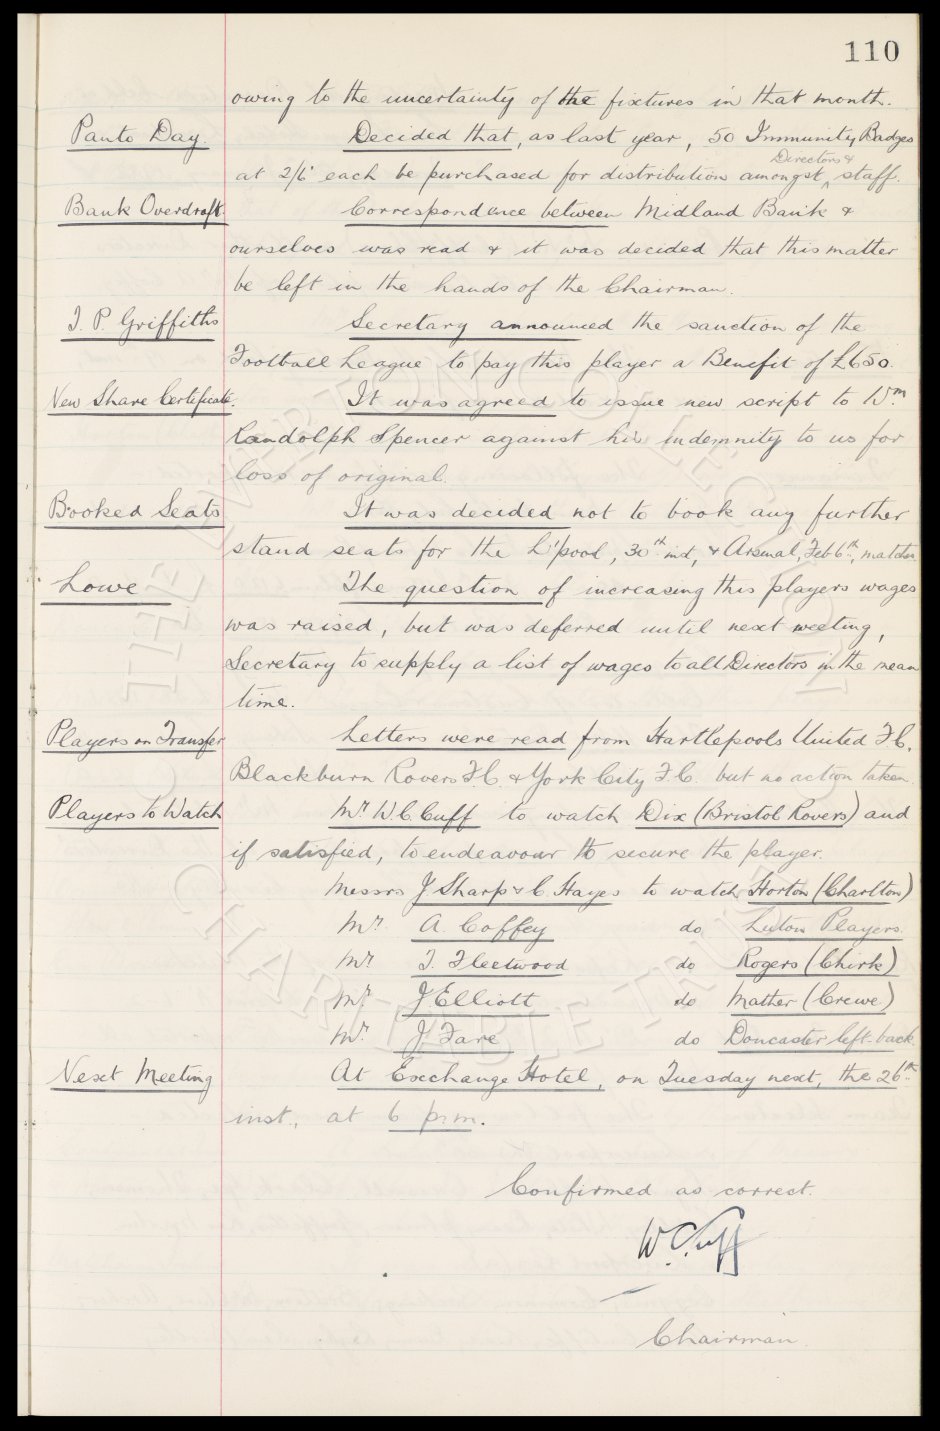 110
owing to the uncertainty of the fixtures in that month.
Panto Day. Decided that, as last year, 50 Immunity Badges
Directors &
at 2/6 each be purchased for distribution amongst ^ staff.
Bank Overdraft. Correspondence between Midland Bank &
ourselves was read & it was decided that this matter
be left in the hands of the Chairman.
T. P. Griffiths Secretary announced the sanction of the
Football League to pay this player a Benefit of £650.
New Share Certificate. It was agreed to issue new script to Wm
Randolph Spencer against his indemnity to us for
loss of original.
Booked Seats It was decided not to book any further
stand seats for the L'pool, 30th inst, & Arsenal, Feb 6th, matches.
Lowe The question of increasing this players wages
was raised, but was deferred until next meeting,
Secretary to supply a list of wages to all Directors in the mean
time.
Players on Transfer Letters were read from Hartlepools United F.C.
Blackburn Rovers F.C. & York City F.C. but no action taken.
Players to Watch Mr. W.C. Cuff to watch Dix (Bristol Rovers) and
if satisfied, to endeavour to secure the player.
Messrs J Sharp & C. Hayes to watch Horton (Charlton)
Mr. A. Coffey do Luton Players.
Mr. T. Fleetwood do Rogers (Chirk)
Mr. J. Elliott do Mather (Crewe)
Mr. J. Fare do Doncaster left-back.
Next Meeting At Exchange Hotel, on Tuesday next, the 26th
inst., at 6 p.m.
Confirmed as correct.
W.C. Cuff
Chairman
THE EVERTON COLLECTION
CHARITABLE TRUST